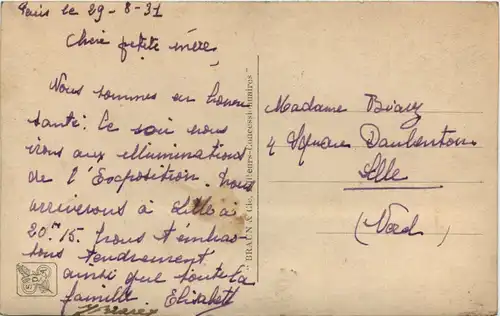 Paris le 29-8-31
Chère petite mère,
Nous sommes en bonne
santé. Ce soir nous
irons aux illuminations
de l'Exposition. Nous
arriverons à Lille à
20h 15. Nous t'embras-
sons tendrement
ainsi que toute la
famille. Elisabeth
"BRAUN & Cie, Éditeurs-Concessionnaires"
Madame
4 Square Daubenton
Lille
(Nord)